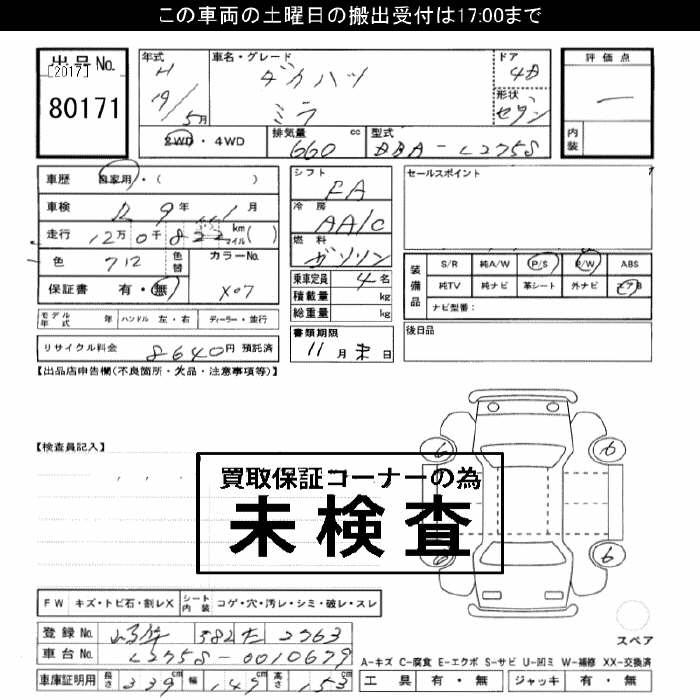 この車両の土曜日の搬出受付は17:00まで
出品No.
[2017]
80171
年式 H 19/5月
車名・グレード
ダイハツ
ミラ
ドア 4D
形状 セダン
評価点
内装
2WD・4WD
排気量 660 cc
型式 DBA-L275S
車歴 自家用・( )
車検 9年 月
走行 12万0千822 km マイル( )
色 712 色替
カラーNo. X07
保証書 有・無
モデル年式 年 ハンドル 左・右 ディーラー・並行
リサイクル料金 8640円 預託済
シフト FA
冷房 AA/C
燃料 ガソリン
乗車定員 4名
積載量 kg
総重量 kg
書類期限
11月末日
セールスポイント
装備品
S/R 純A/W P/S P/W ABS
純TV 純ナビ 革シート 外ナビ エアB
ナビ型番:
後日品
【出品店申告欄(不良箇所・欠品・注意事項等)】
【検査員記入】
買取保証コーナーの為
未検査
6
6
6
6
FW キズ・トビ石・割レX シート内装 コゲ・穴・汚レ・シミ・破レ・スレ
登録No. 582 2763
車台No. L275S-0010679
車庫証明用 長さ 339 幅 147 高さ 153 cm
スペア
A-キズ C-腐食 E-エクボ S-サビ U-凹ミ W-補修 XX-交換済
工具 有・無 ジャッキ 有・無